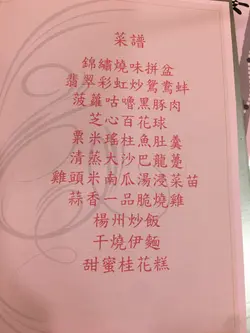 菜譜
錦繡燒味拼盆
翡翠彩虹炒鴛鴦蚌
菠蘿咕嚕黑豚肉
芝心百花球
粟米瑤柱魚肚羹
清蒸大沙巴龍躉
雞頭米南瓜湯浸菜苗
蒜香一品脆燒雞
楊州炒飯
干燒伊麵
甜蜜桂花糕